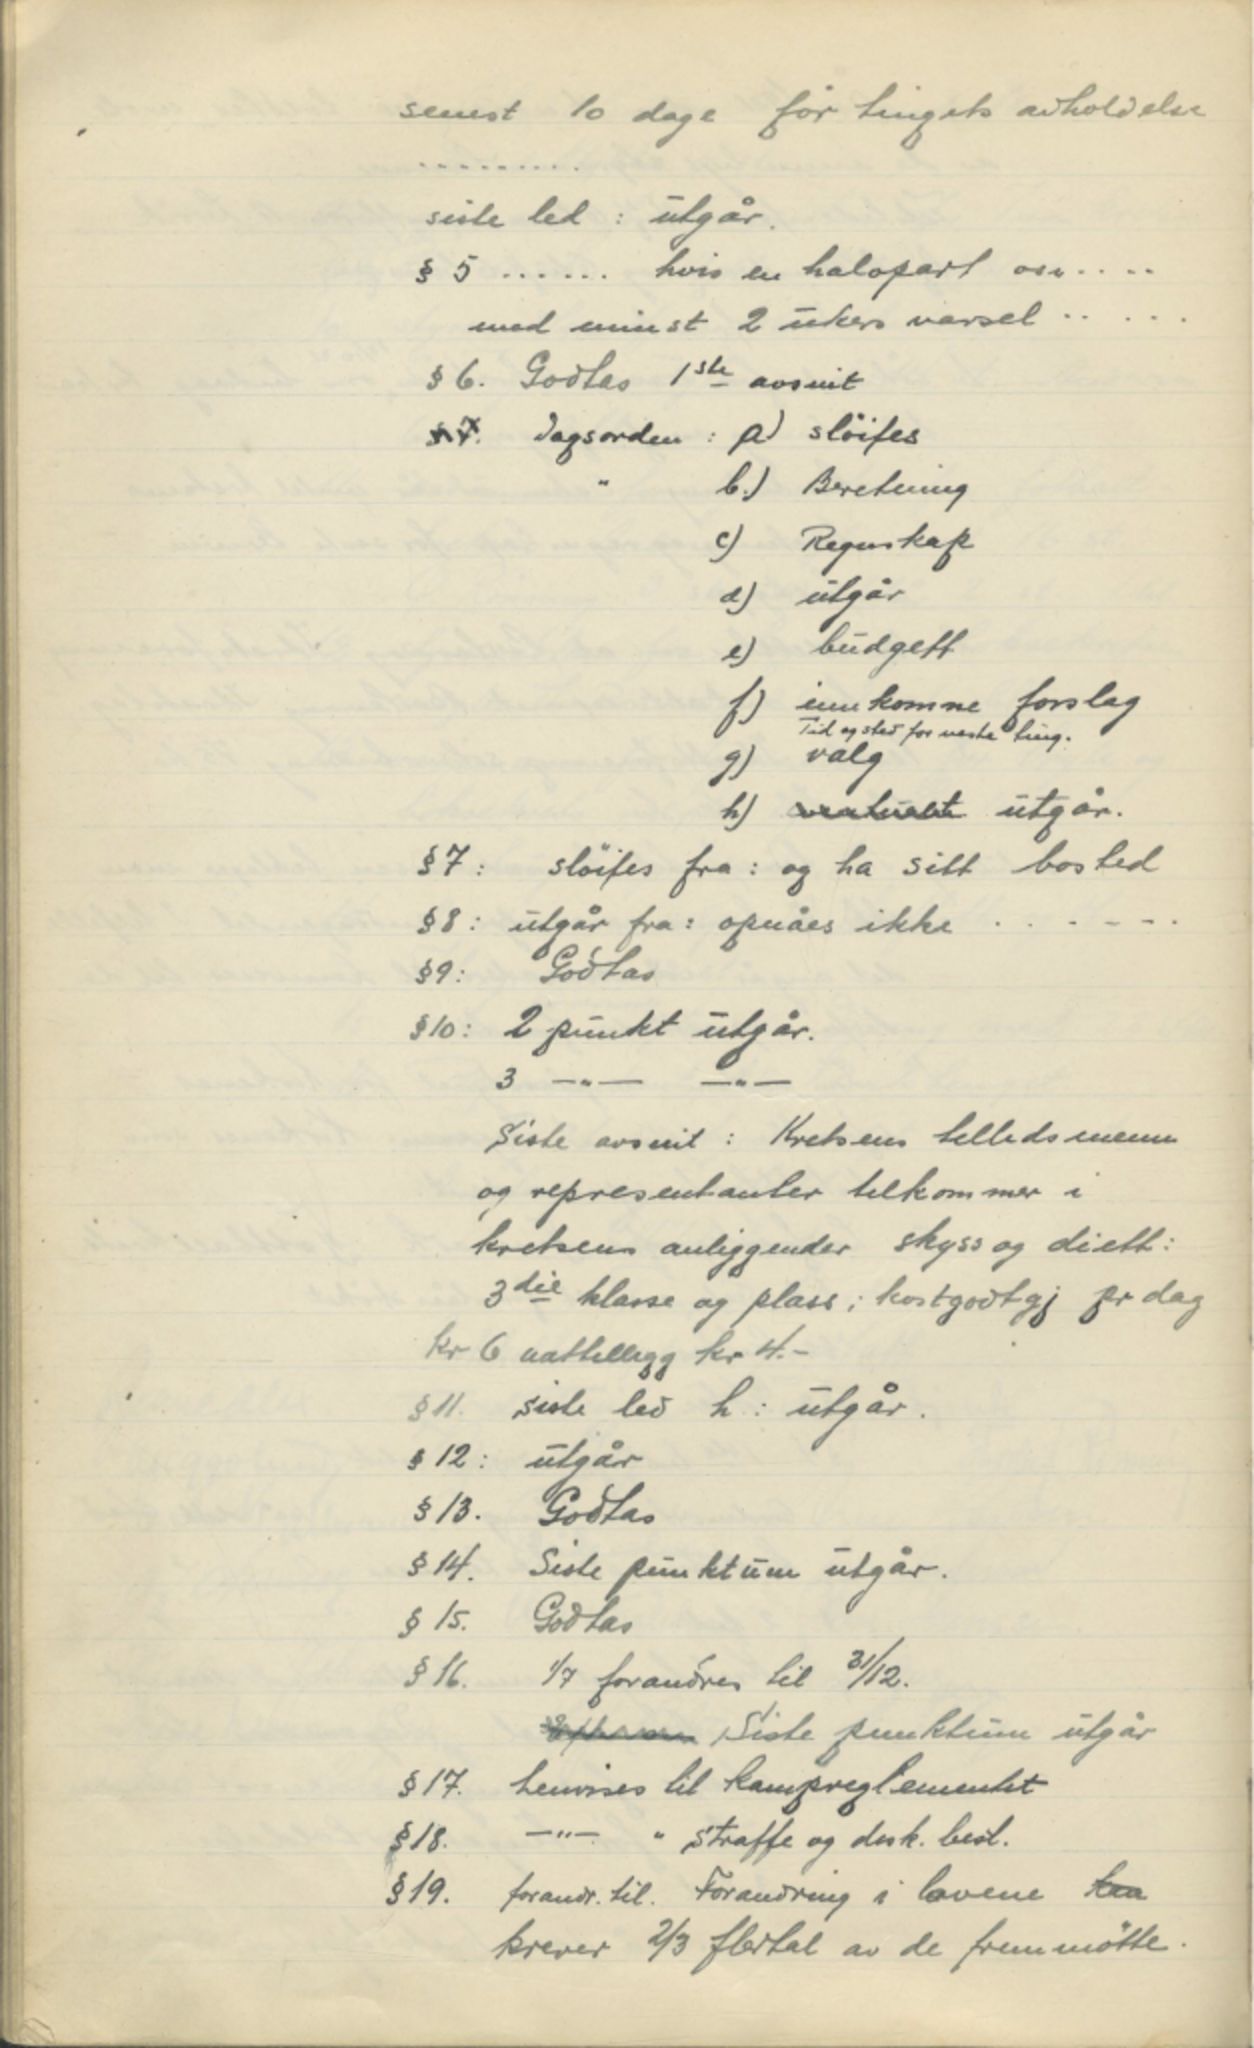 senest 10 dage før tingets avholdelse
.........
siste led : utgår.
§ 5 ...... hvis en halvpart osv....
med minst 2 ukers varsel .....
§ 6. Godtas 1ste avsnit
§ 7. Dagsorden : a) sløifes
" b.) Beretning
c) Regnskap
d) utgår
e) budgett
f) innkomne forslag
Tid og sted for neste ting.
g) valg
h) eventuelt utgår.
§ 7 : sløifes fra : og ha sitt bosted
§ 8 : utgår fra : opnåes ikke ......
§ 9 : Godtas
§ 10 : 2 punkt utgår.
3 —"— —"—
Siste avsnit : Kretsens tillidsmenn
og representanter tilkommer i
kretsens anliggender skyss og diett :
3die klasse og plass ; kostgodtgj pr dag
kr 6 nattillegg kr 4.-
§ 11. siste led h : utgår.
§ 12 : utgår
§ 13. Godtas
§ 14. Siste punktum utgår.
§ 15. Godtas
§ 16. 1/7 forandres til 31/12.
Siste punktum utgår
§ 17. henvises til kampreglementet
§ 18. —"— " straffe og disk. best.
§ 19. forandr. til. Forandring i lovene kan
krever 2/3 flertal av de fremmøtte.